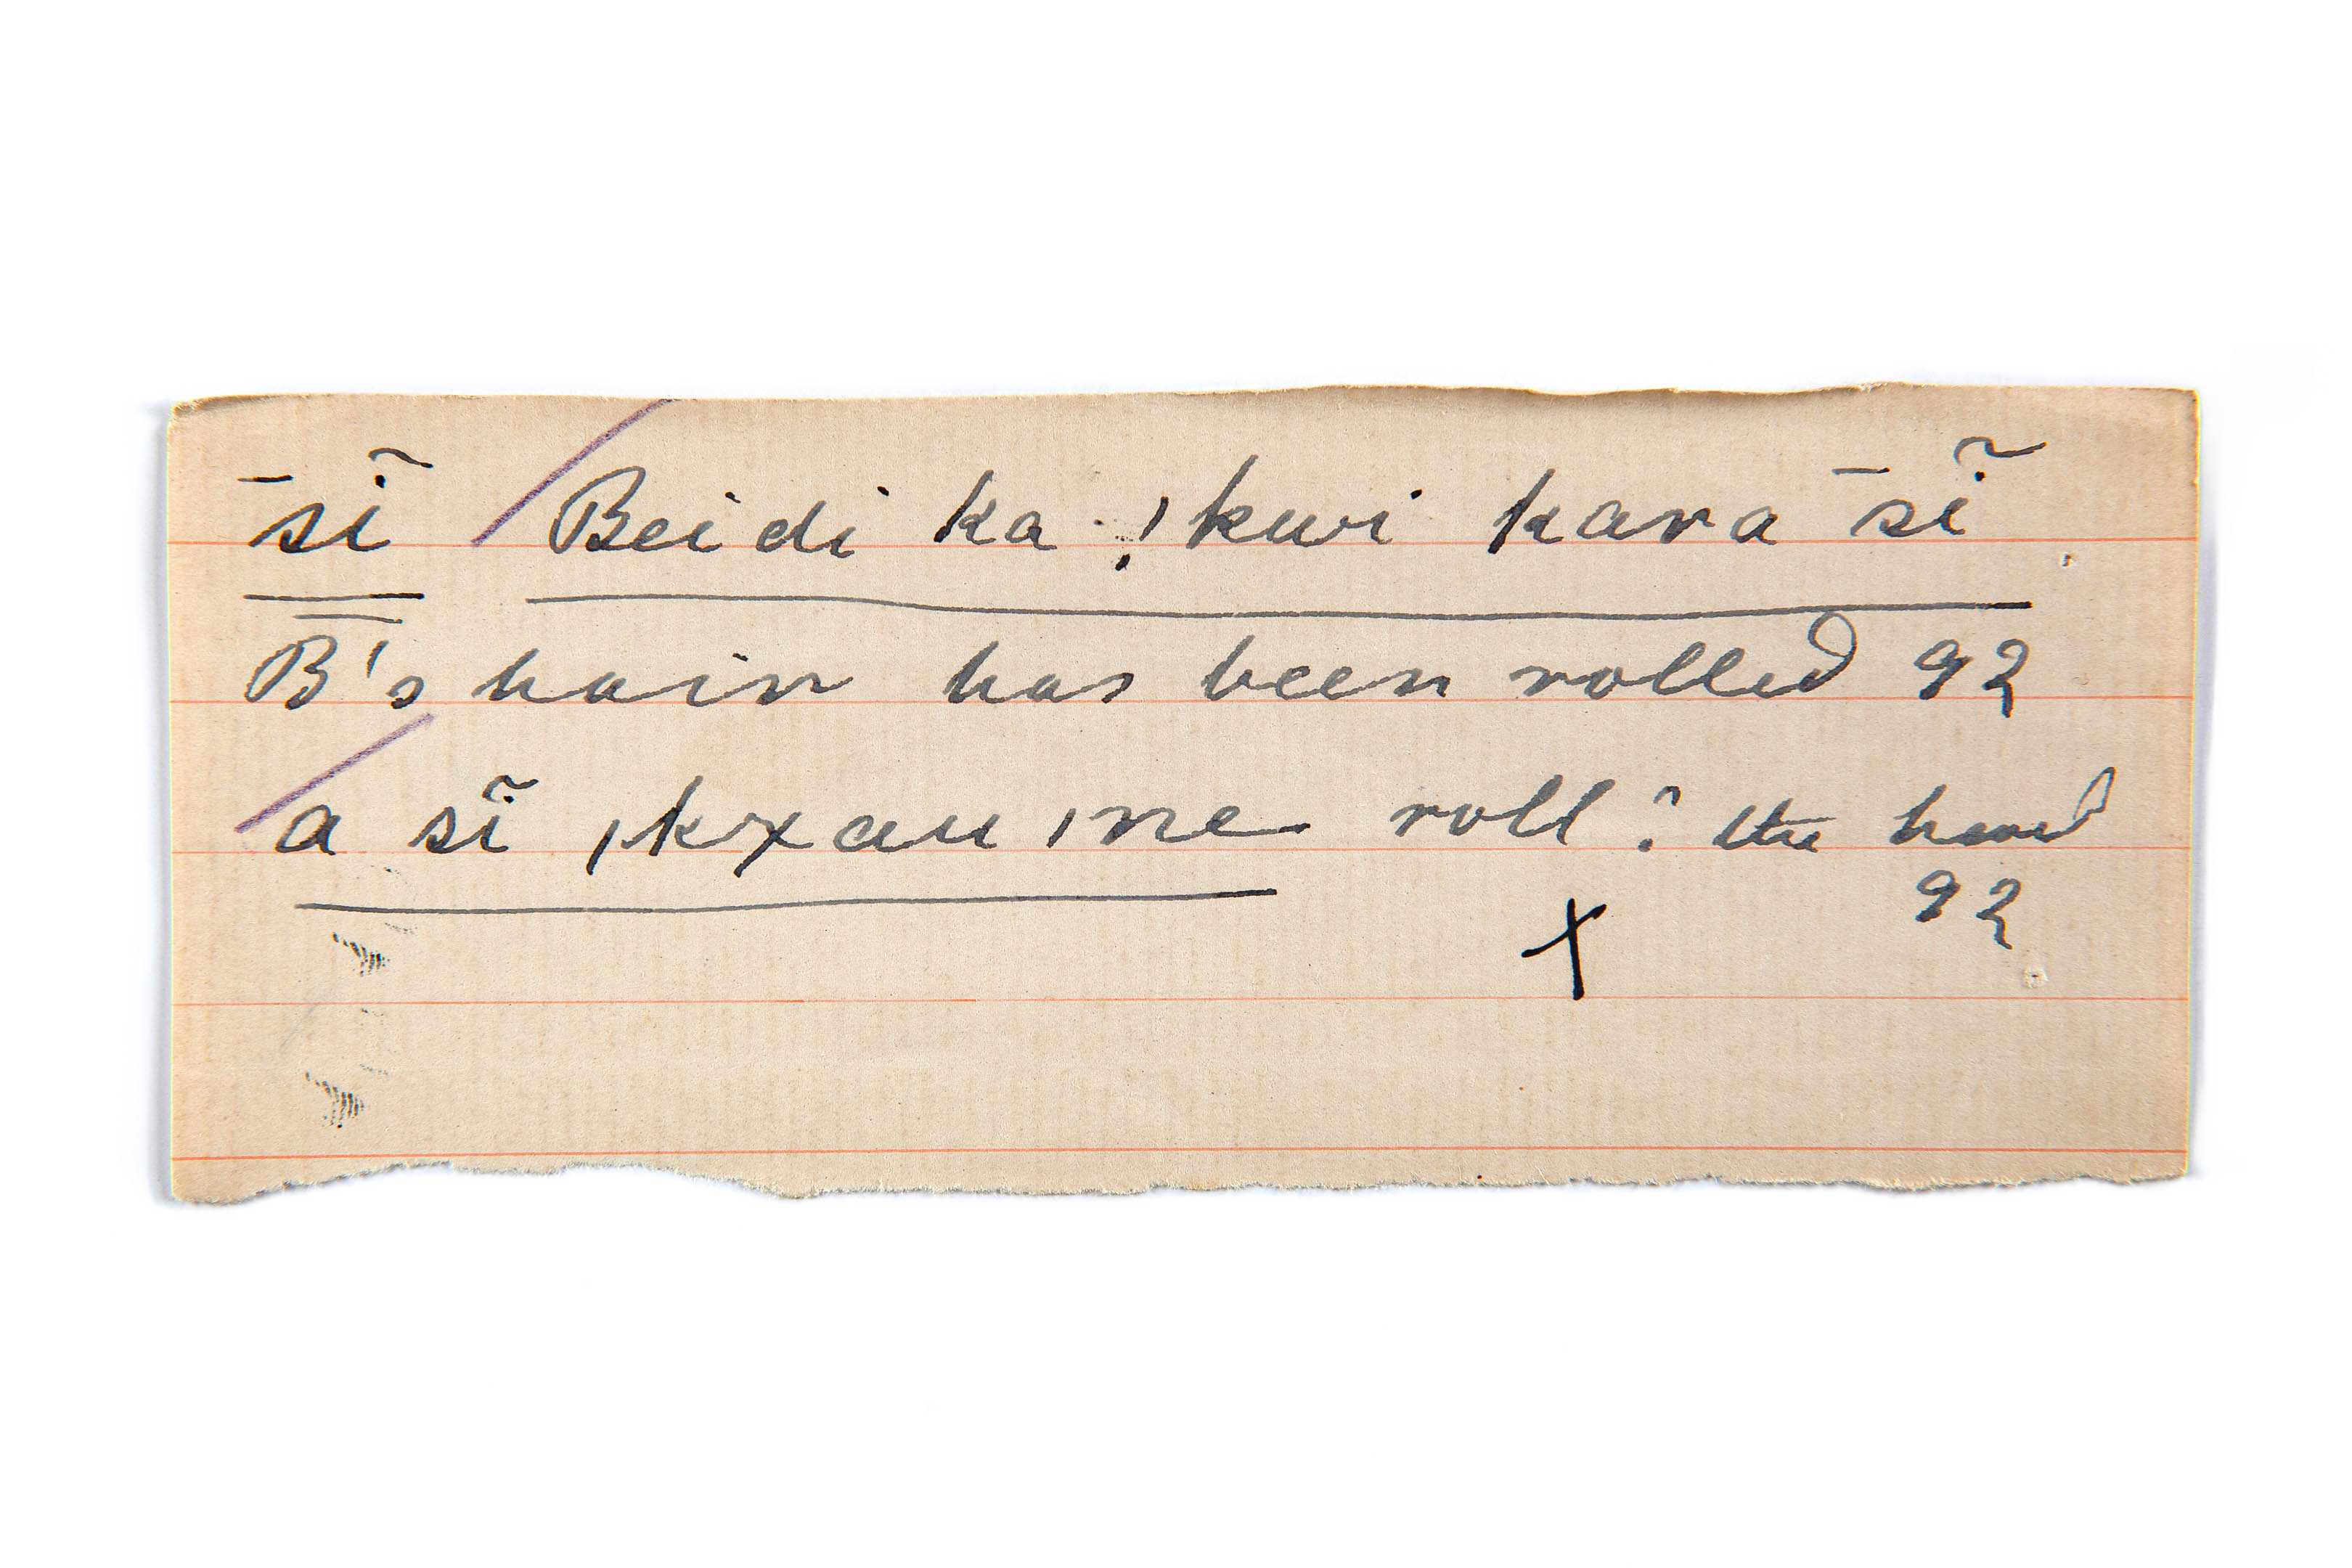 ¯sĩ Beidi ka !kwi kara ¯sĩ
B's hair has been rolled 92
a sĩ ,kxau ,ne roll? the head
x 92